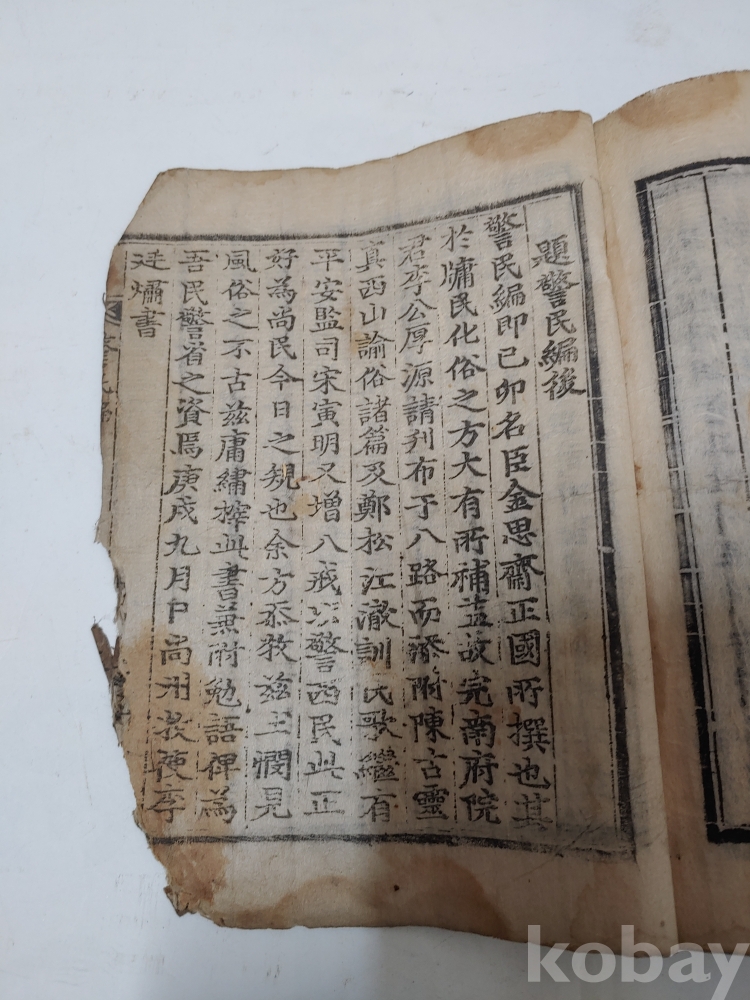 題警民編後
警民編即己卯名臣金思齋正國所撰也其
於牖民化俗之方大有所補益故完南府院
君李公厚源請刋布于八路而添附陳古靈
真西山諭俗諸篇及鄭松江澈訓民歌繼有
平安監司宋寅明又增八戒以警西民此正
好為尚民今日之規也余方忝牧玆土憫見
風俗之不古玆庸繡榟此書兼附勉語裨為
吾民警省之資焉庚戌九月日尚州牧使李
廷熽書
kobay